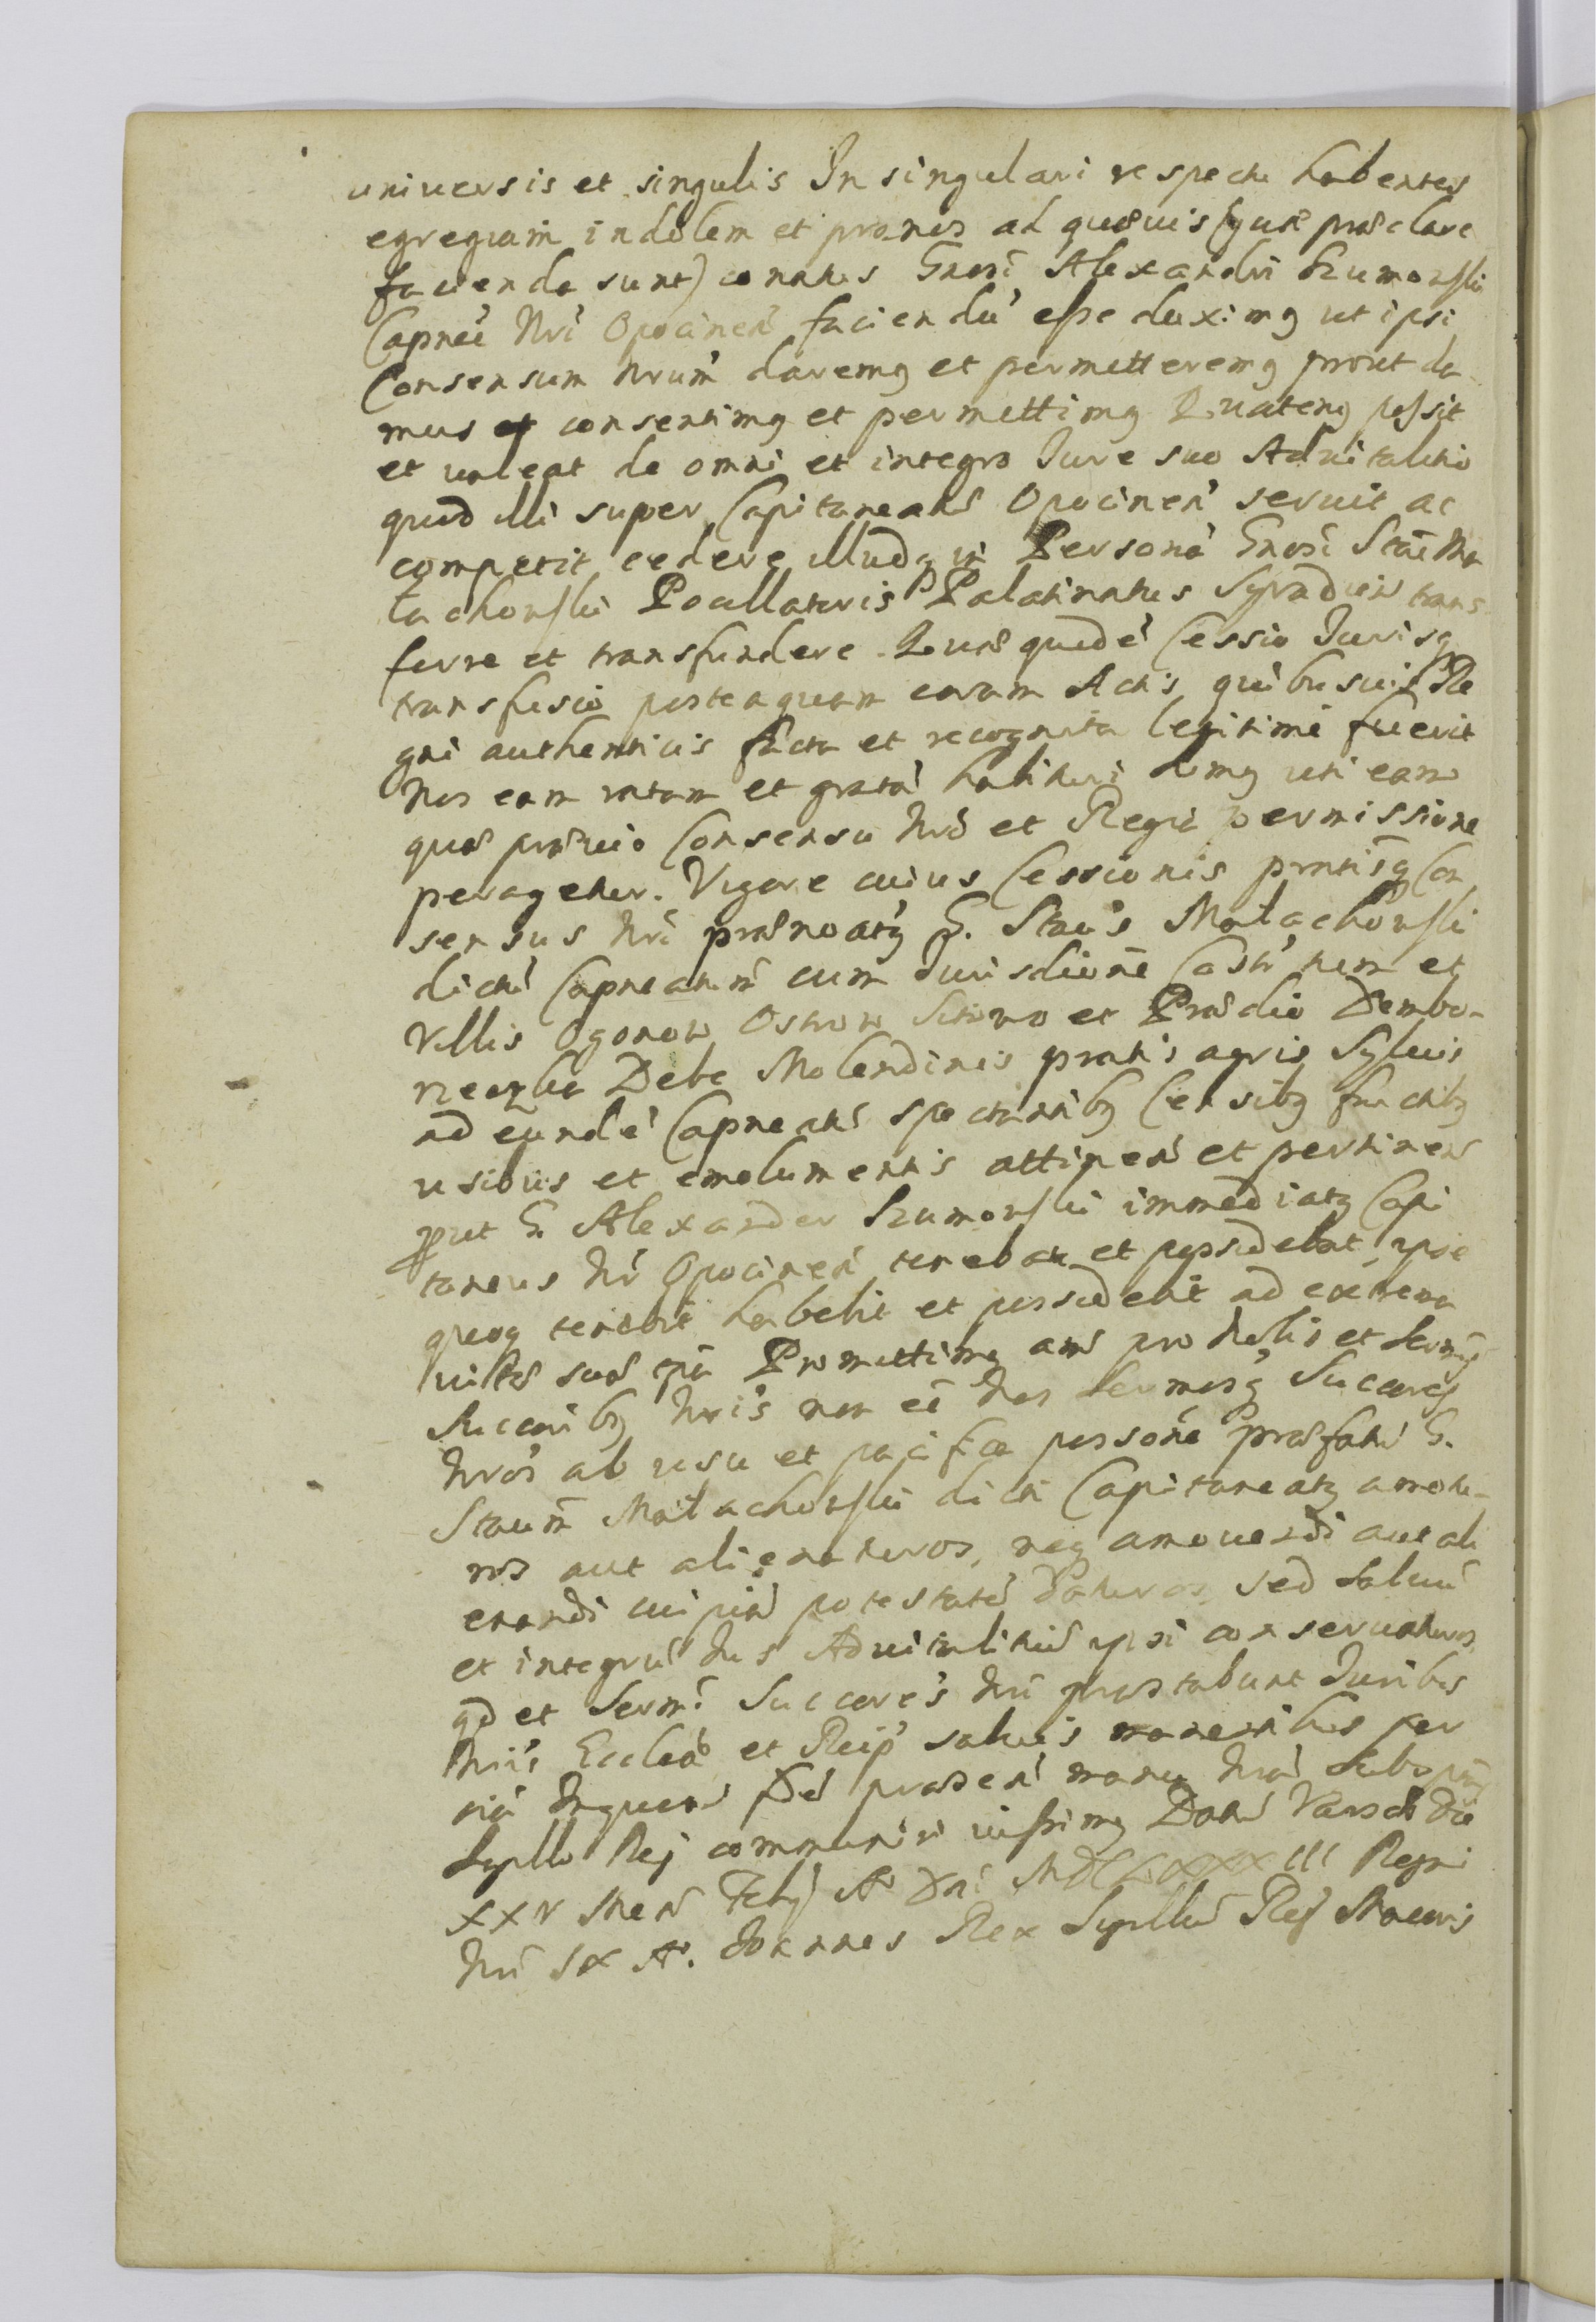 universis et singulis In singulari respectu habentes
egregiam indolem et pronos ad quævis (quæ præclare
facienda sunt) conatus Gnosi Alexandri Szumowski
Capnei Nri Opocinen faciendu esse duximg ut ipsi
Consensum Nrum daremg et permitteremg prout da
mus et consentimg et permittimg Quateng possit
et valeat de omni et integro Jure suo Aduitalitio
quod illi super Capitaneatu Opocinen seruit ac
competit cedere illudq in Persona Gnosi Stai Ma
lachowski Pocillatoris Palatinatus Syradien trans
ferre et transfundere. Quæ quidē Cessio Jurisq
transfusio posteaquam coram Actis quibusuis Re
gni authenticis facta et recognita legitime fuerit
Nos eam ratam et gratā habituri sumg uti eam
quæ præuio Consensu Nro et Regia permissione
peragetur. Vigore cuius Cessionis prntisq Con
sensus Nri prænoatg G. Staus Małachowski
dictū Capneatum cum Jurisdictione Castri tum et
Villis Ogonow Ostrow Sitowa et Prædio Dembo-
neczka Deba Molendinis pratis agris Syluis
ad eundē Capneatū spectantibg Censibg fructibg
usibus et emolumentis attinen et pertinen
put G. Alexander Szumowski immediatg Capi
taneus Nr Opocinen tenebat et possidebat ipse
quoq tenebit habebit et possidebit ad extrema
uitæ suæ tpa Promittimg aut pro Nobis et Sermis
Succoribg Nris non eē Nos Sermosq Succores
Nros ab usu et pacifca possone præfatū G.
Staum Małachowski dicti Capitaneatg amotu-
ros aut alienaturos, neq amouendi aut ali
enandi cuipiā potestatē daturos, sed saluū
et integrū Jus Aduitalitiū ipsi conseruaturos,
qd et Sermi Succores Nri præstabunt Juribus
Nris Ecclæ et Reip saluis manentibus
In quorū fidē præsen manu Nra Subsptas
Sigillo Rej communiri iussimg Datū Varsæ Die
XXV Men Febrj Ao Dni MDCLXXXIII Regni
Nri IX Ao. Joannes Rex Sigillu Rej Maioris